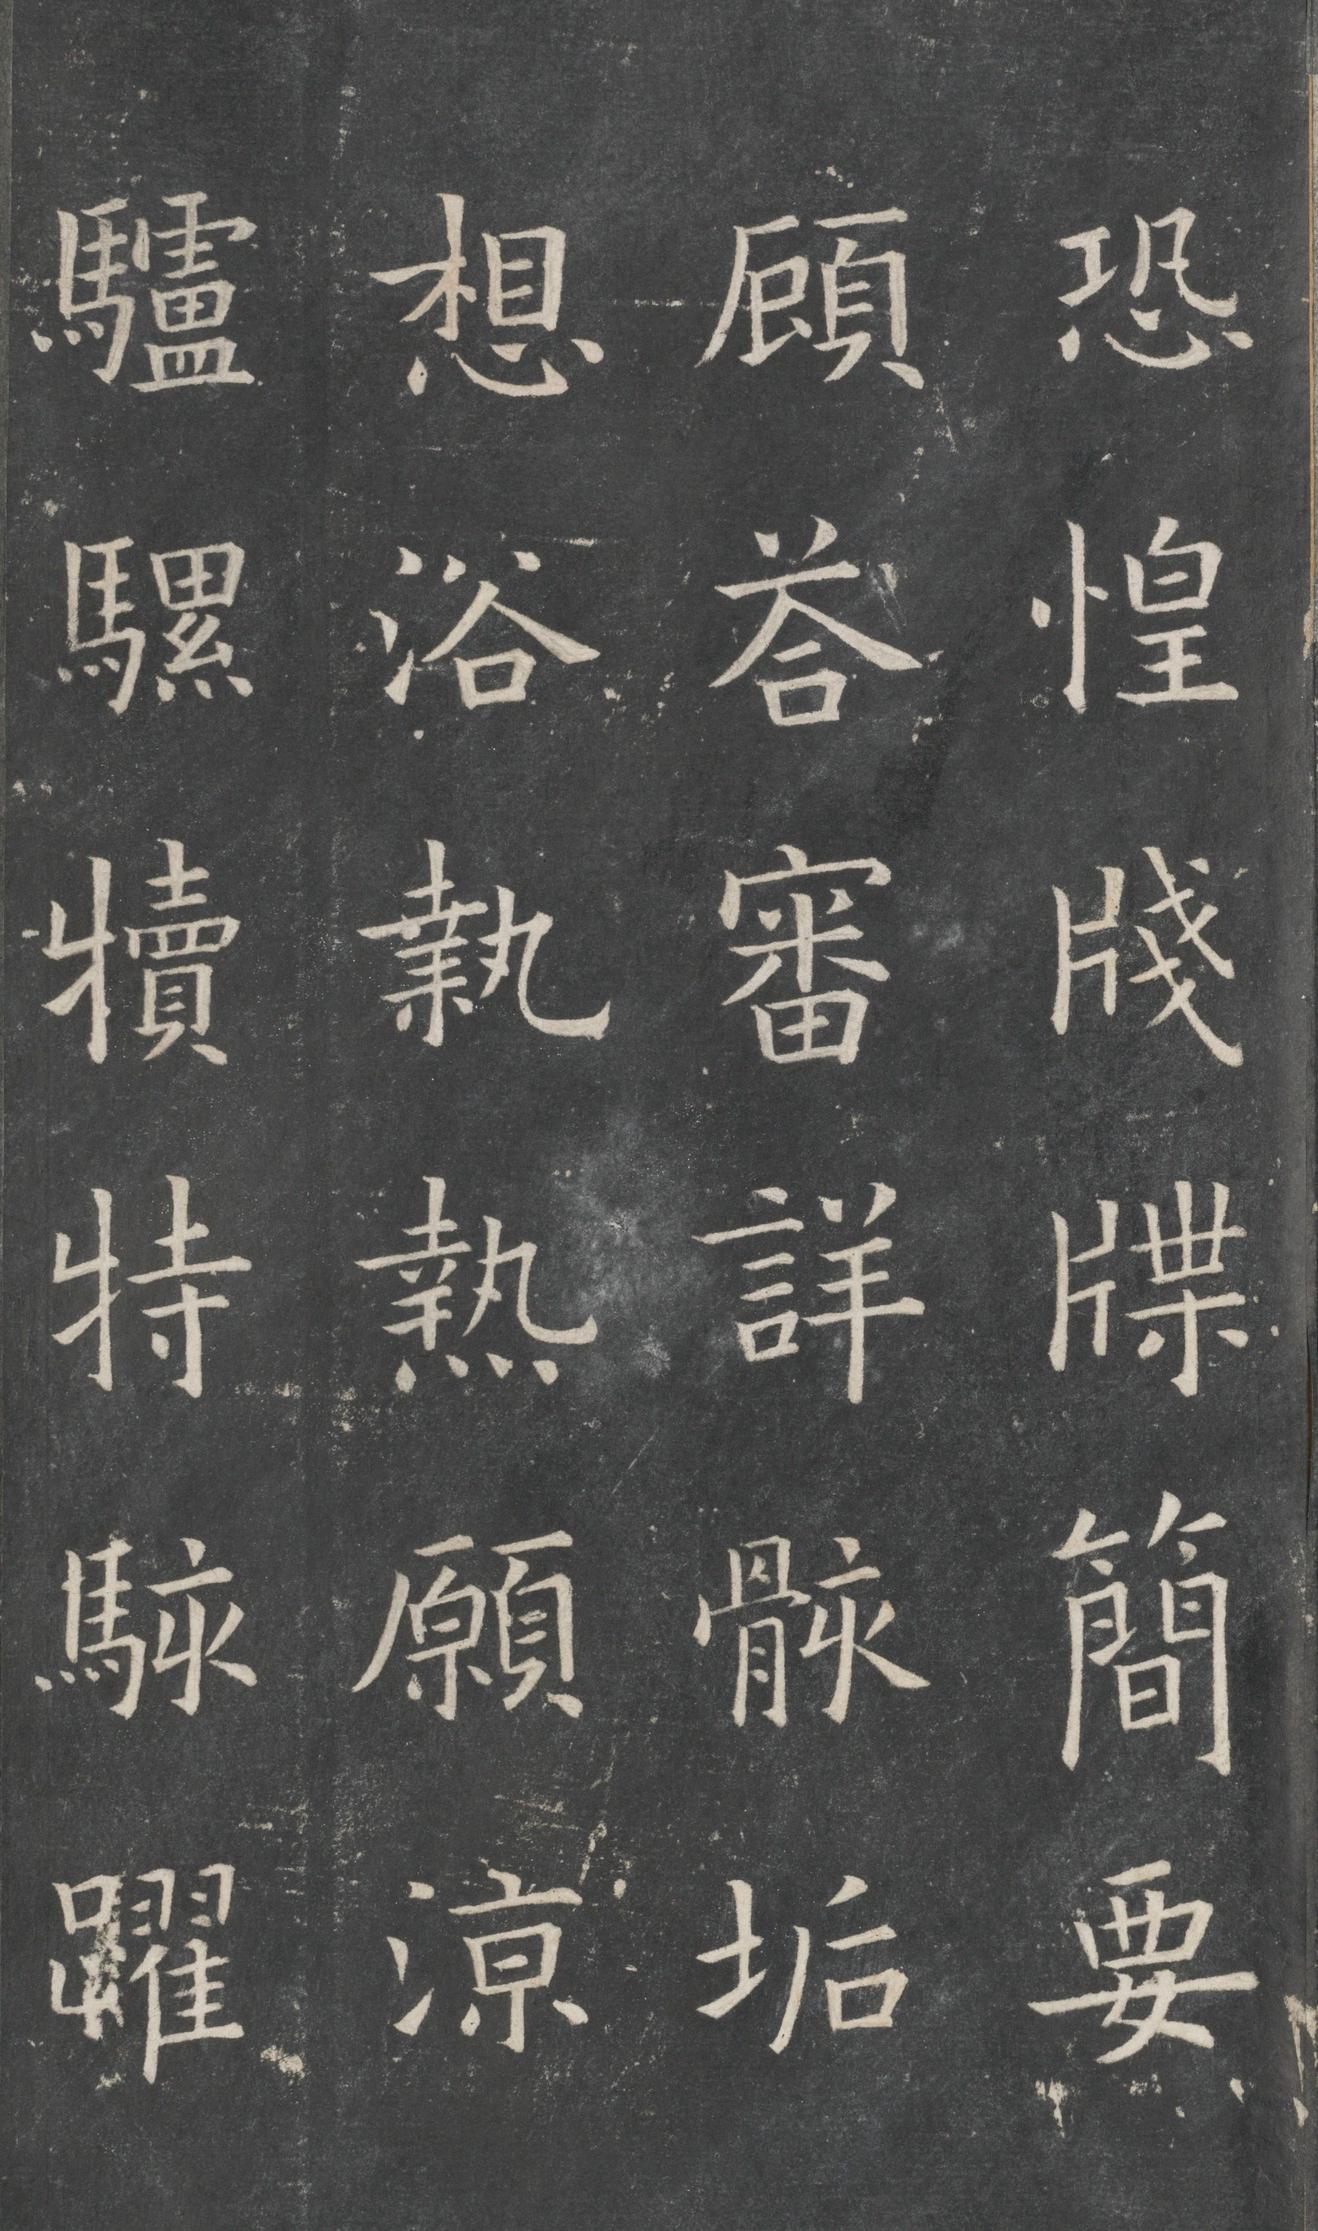 恐惶牋牒簡要
顧荅審詳骸垢
想浴執熱願涼
驢騾犢特駭躍